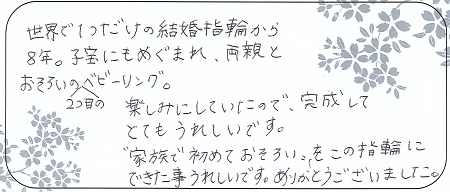 世界で1つだけの結婚指輪から
8年。子宝にもめぐまれ、両親と
おそろいの2コ目のベビーリング。
楽しみにしていたので、完成して
とてもうれしいです。
"家族で初めておそろい"をこの指輪に
できた事うれしいです。ありがとうございました。